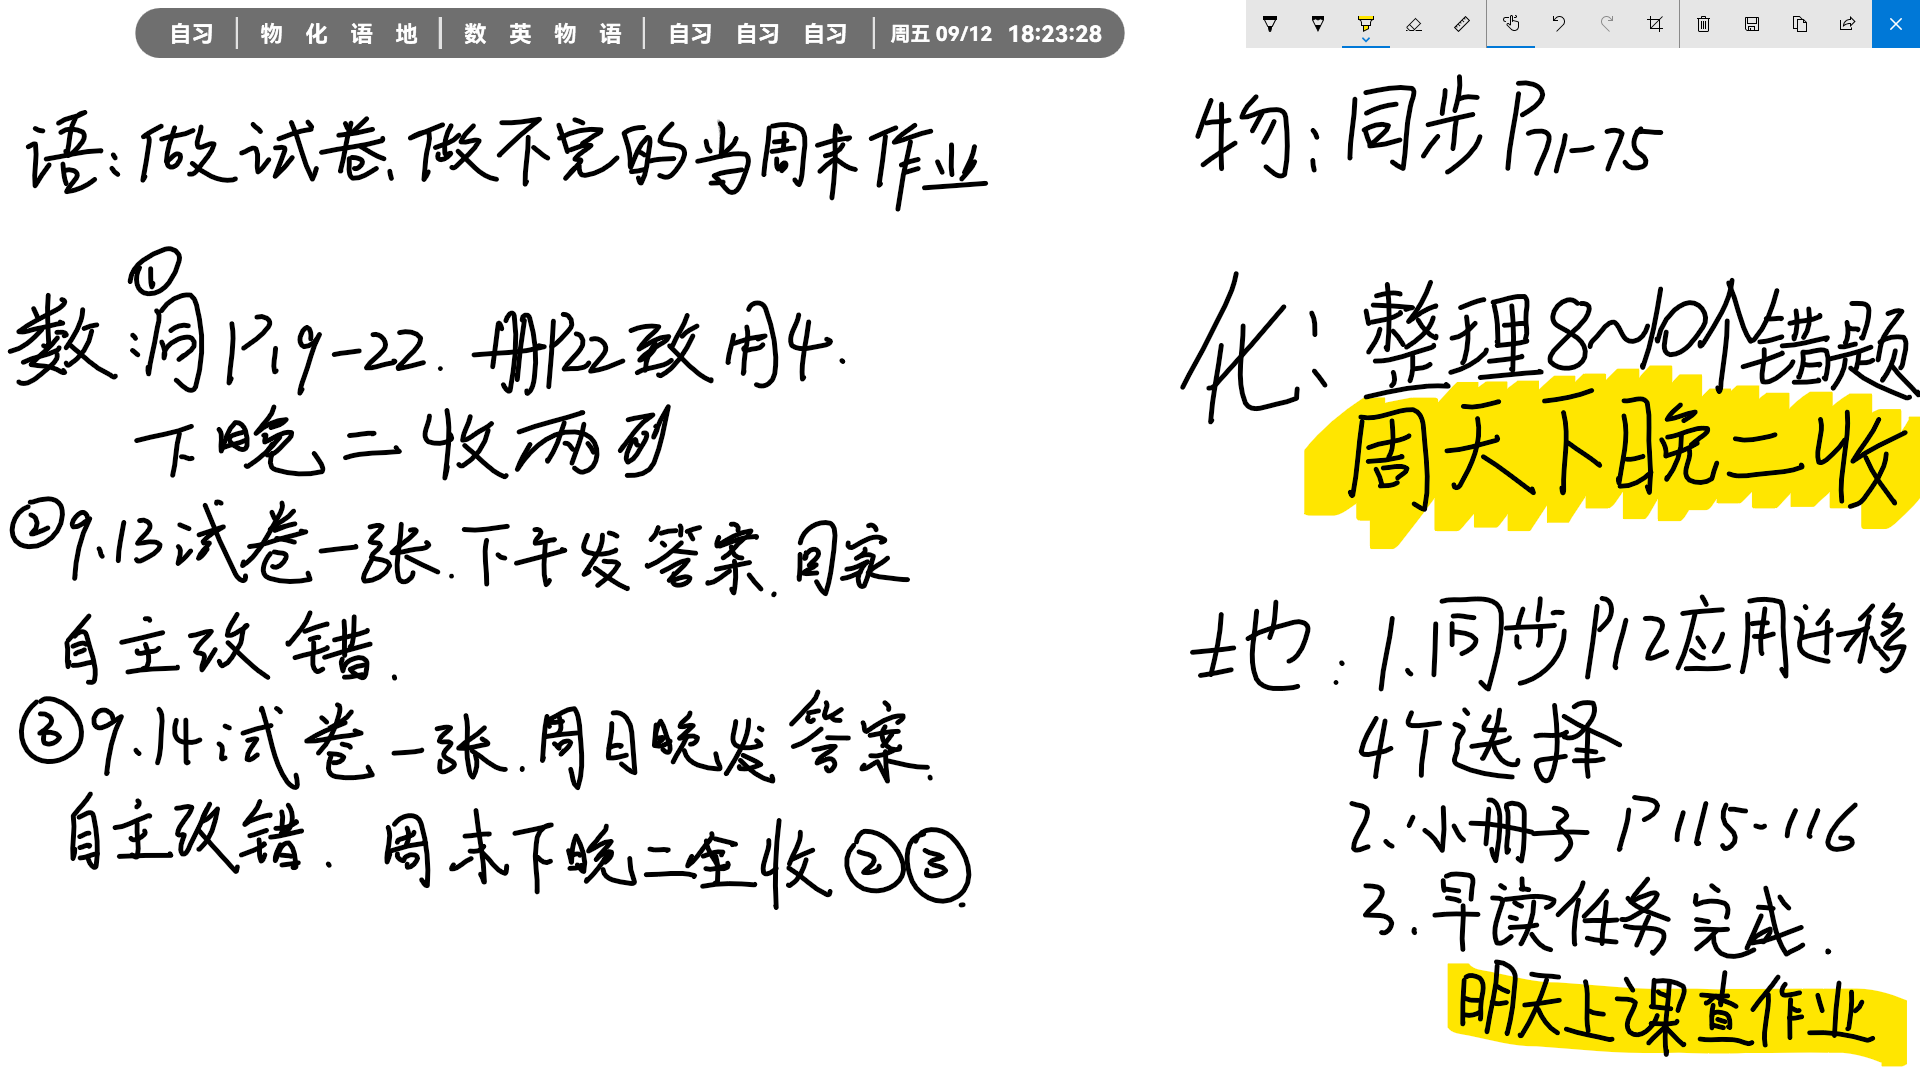 自习 | 物 化 语 地 | 数 英 物 语 | 自习 自习 自习 | 周五 09/12 18:23:28
语:做试卷、做不完的当周末作业
数:①同P19-22. 册P22致用4.
下晚二收两列
②9.13试卷一张.下午发答案.回家
自主改错.
③9.14试卷一张.周日晚发答案.
自主改错. 周末下晚二全收②③.
物:同步P71-75
化:整理8~10个错题
周天下晚二收
地:1.同步P12应用迁移
4个选择
2.小册子P115-116
3.早读任务完成.
明天上课查作业